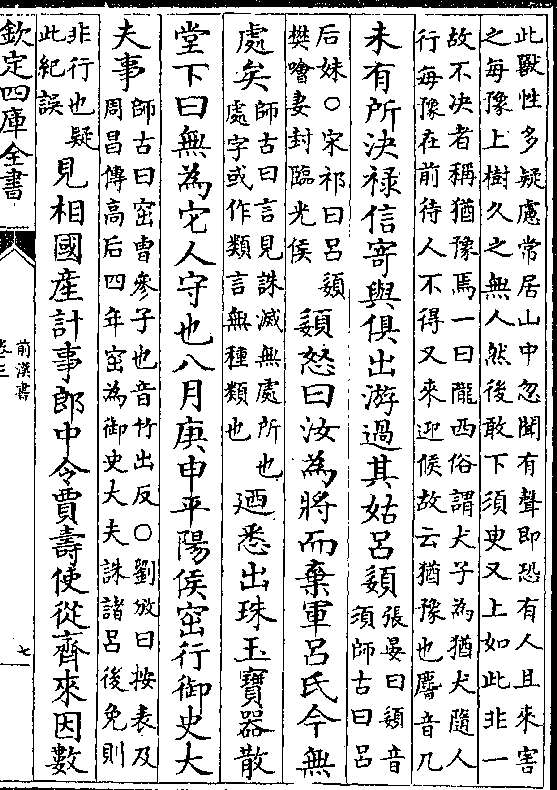 此獸性多疑慮常居山中忽聞有聲即恐有人且來害
之每豫上樹久之無人然後敢下須臾又上如此非一
故不決者稱猶豫焉一曰隴西俗謂犬子為猶犬隨人
行每豫在前待人不得又來迎候故云猶豫也麐音几
未有所決禄信寄與俱出游過其姑呂嬃張晏曰嬃音
須師古曰呂
后妹○宋祁曰呂嬃
樊噲妻封臨光侯
嬃怒曰汝為將而棄軍呂氏今無
處矣師古曰言見誅滅無處所也
處字或作類言無種類也
迺悉出珠玉寶器散
堂下曰無為它人守也八月庚申平陽侯窋行御史大
夫事師古曰窋曹參子也音竹出反○劉攽曰按表及
周昌傳高后四年窋為御史大夫誅諸呂後免則
非行也疑
此紀誤
見相國產計事郎中令賈壽使從齊來因數
欽定四庫全書
前漢書
卷三
七